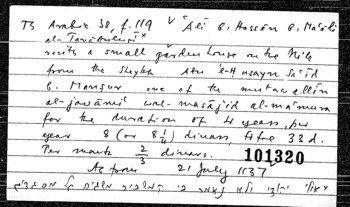 TS Arabic 38, f. 119 V ʿAlī b. Ḥassān b. Maʿālī
al-Ṭarābulusī x
rents a small garden house on the Nile
from the Sheykh Abu 'l-Ḥusayn Saʿīd
b. Manṣūr one of the mutawallīn
al-jawāmiʿ wal-masājid al-maʿmūra
for the duration of 4 years, per
year 8 (or 8 1/4) dinars, 33 d.
Per month 2/3 dinars.
101320
As from 21 July 1137